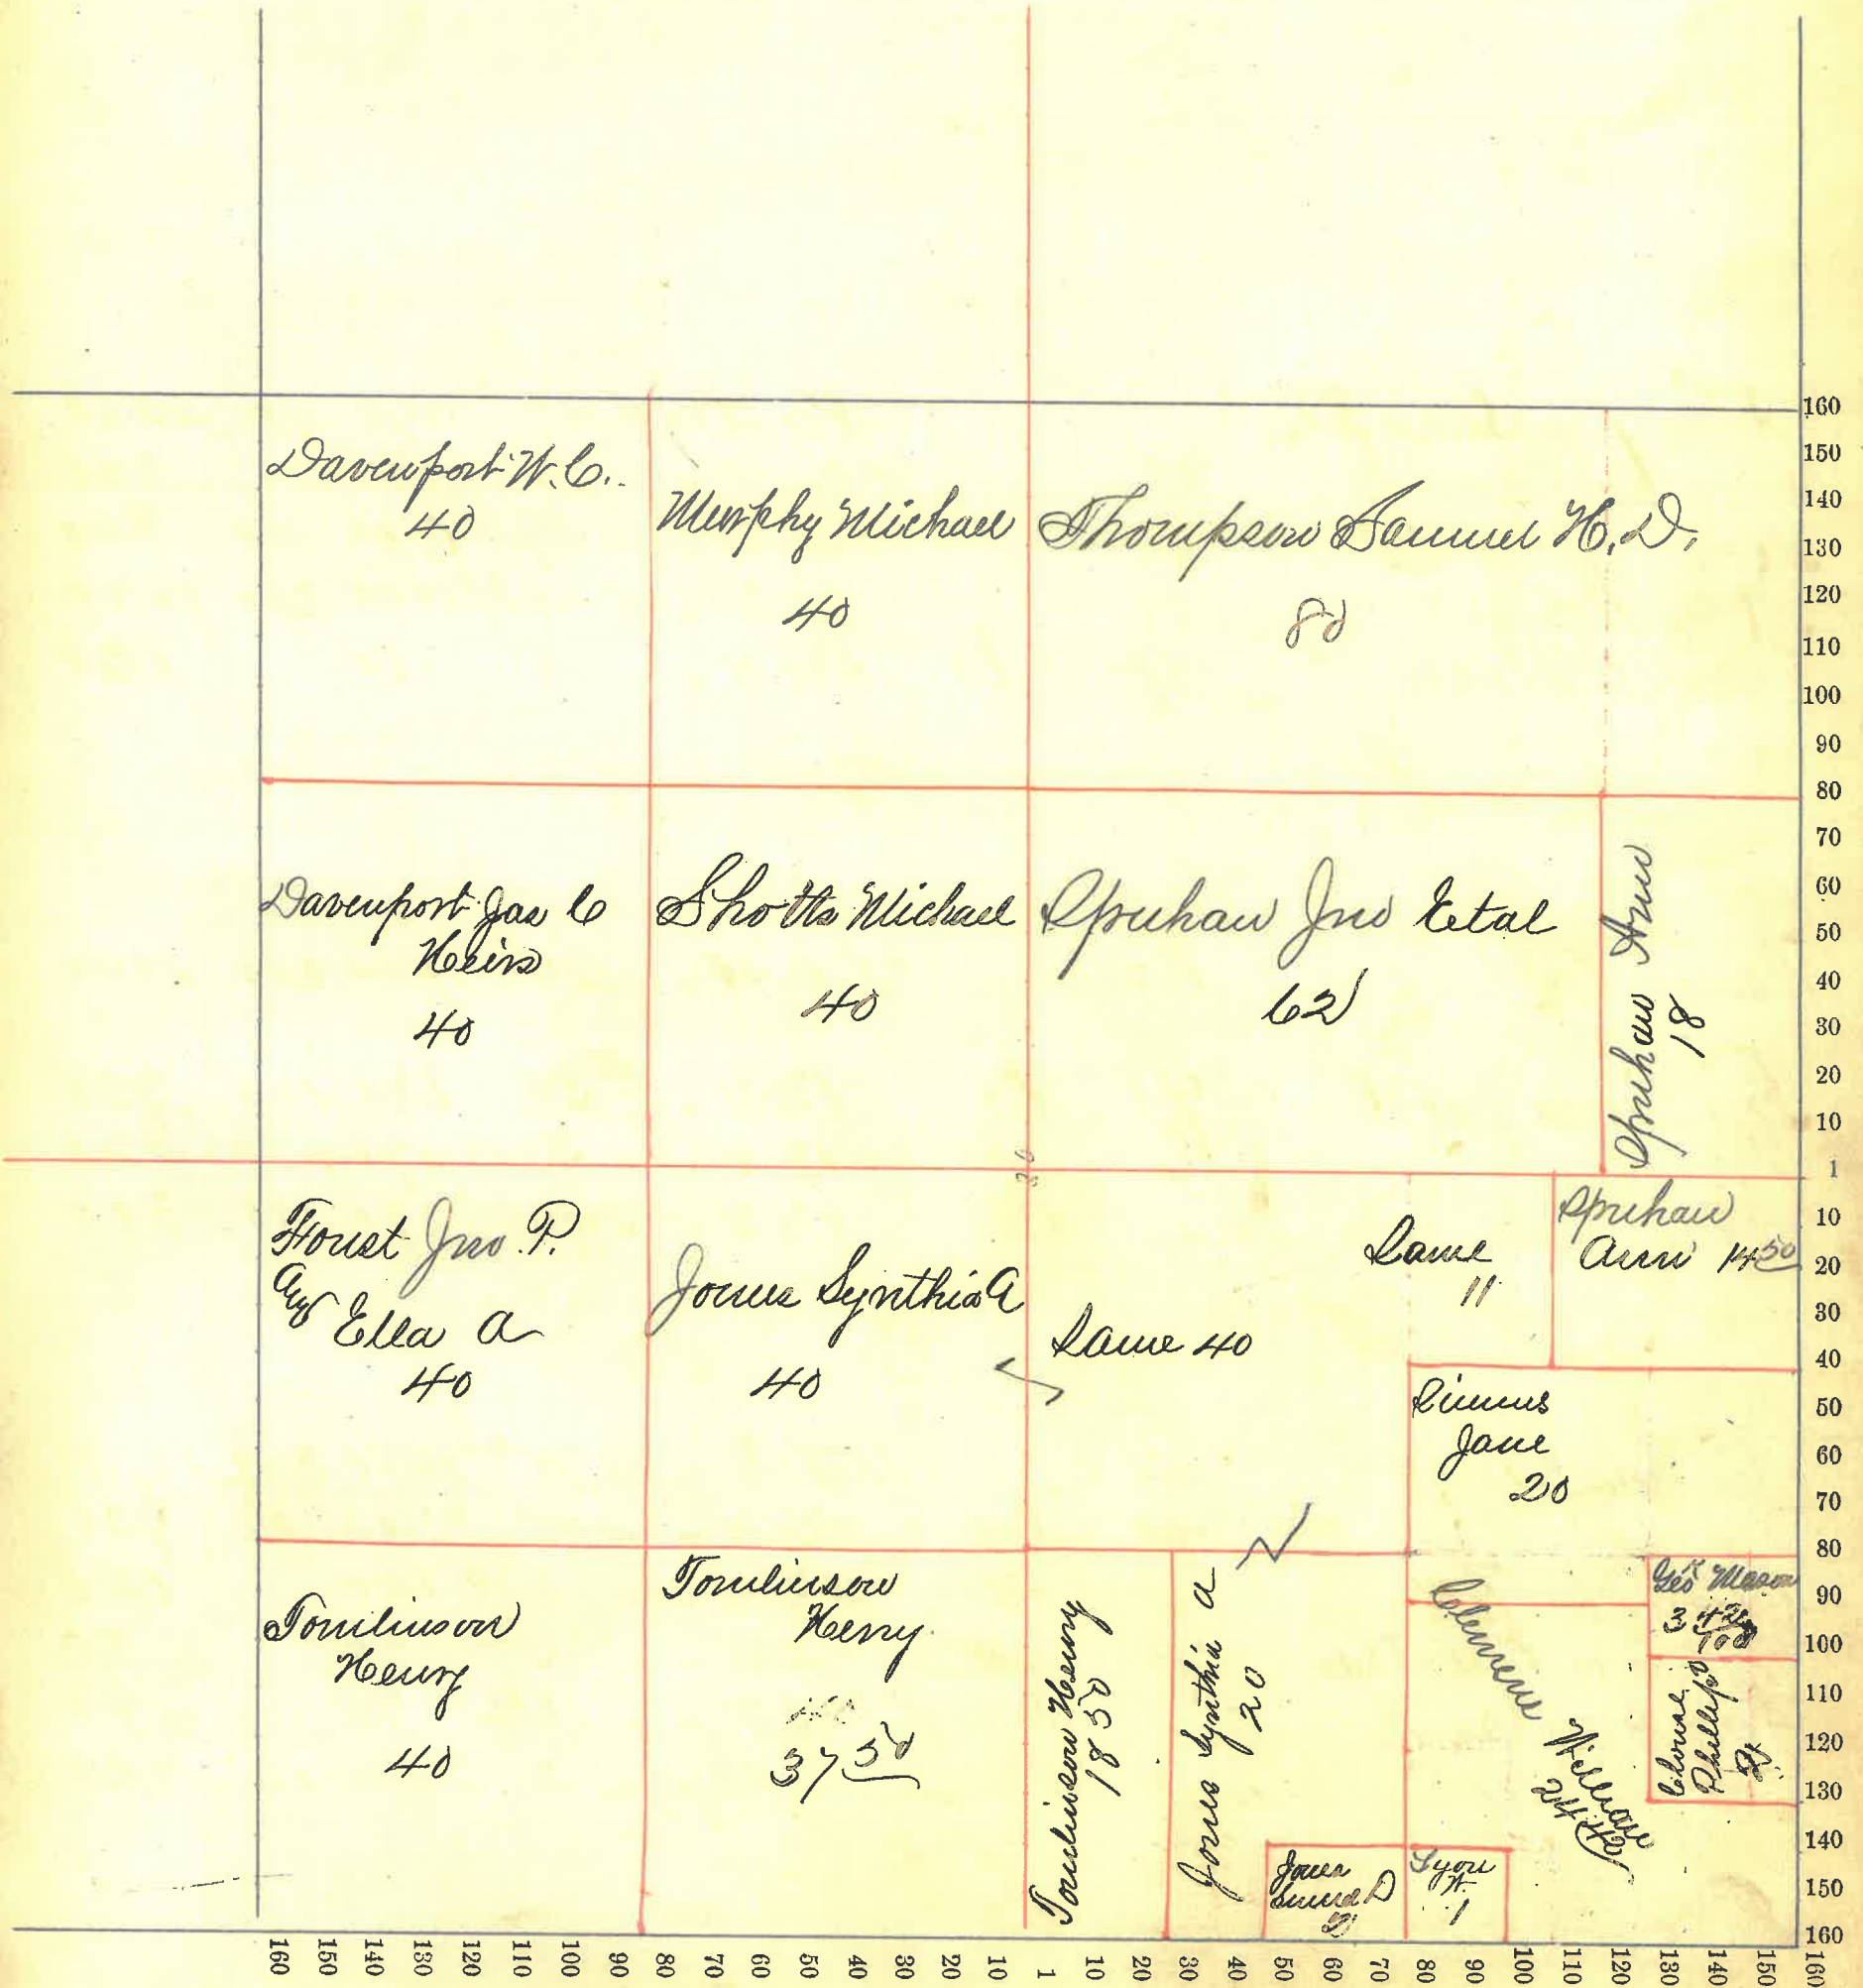 Davenport W. C.
40
Murphy Michael
40
Thompson Samuel H. D.
80
Davenport Jas C
Heirs
40
Shotts Michael
40
Spuhan Jno Etal
62
Spuhan Ann
18
Foust Jno. P.
Ella A
40
Jones Synthia A
40
Same 40
Same
11
Spuhan
Ann 14 50
Simms
Jane
20
Tomlinson
Henry
40
Tomlinson
Henry
37 50
Tomlinson Henry
18 50
Jones Synthia A
20
Jones
D
2
Lyon
W.
1
Clemens William
24
Geo Mason
3 42/100
Clouse
Phillip
160
150
140
130
120
110
100
90
80
70
60
50
40
30
20
10
1
10
20
30
40
50
60
70
80
90
100
110
120
130
140
150
160
160 150 140 130 120 110 100 90 80 70 60 50 40 30 20 10 1 10 20 30 40 50 60 70 80 90 100 110 120 130 140 150 160